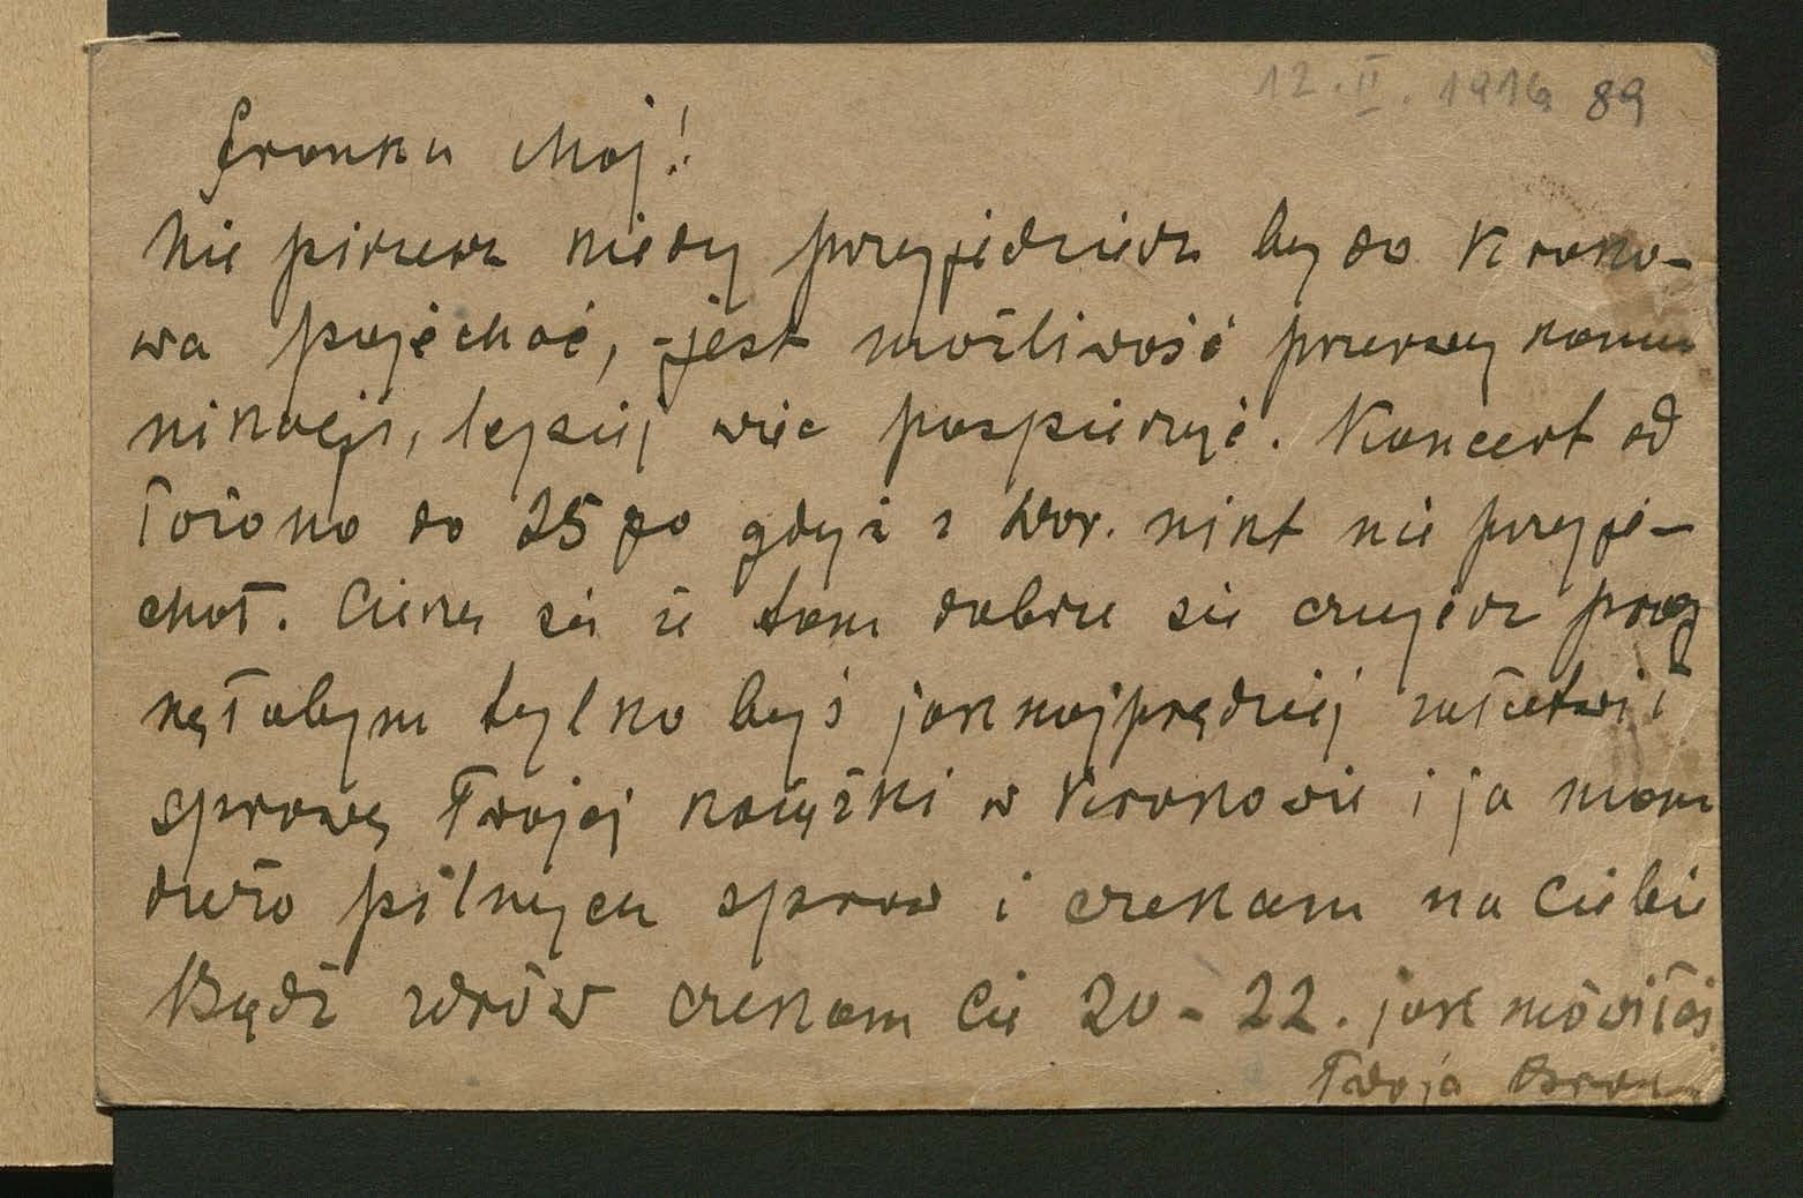 12.II.1916 89
Franku Moj!
Nie piszesz kiedy przyjedziesz by do Krako-
wa pojechać, - jest możliwość przerwy komu
nikacji, lepiej więc pospieszyć. Koncert od
łożono do 25 go gdyż z War. nikt nie przyje-
chał. Cieszę się że tam dobrze się czujesz prag
nęłabym tylko byś jaknajprędzej załatwił
sprawę Twojej książki w Krakowie i ja mam
dużo pilnych spraw i czekam na Ciebie
Bądź zdrów czekam Cię 20-22. jak mówiłeś
Twoja Bron